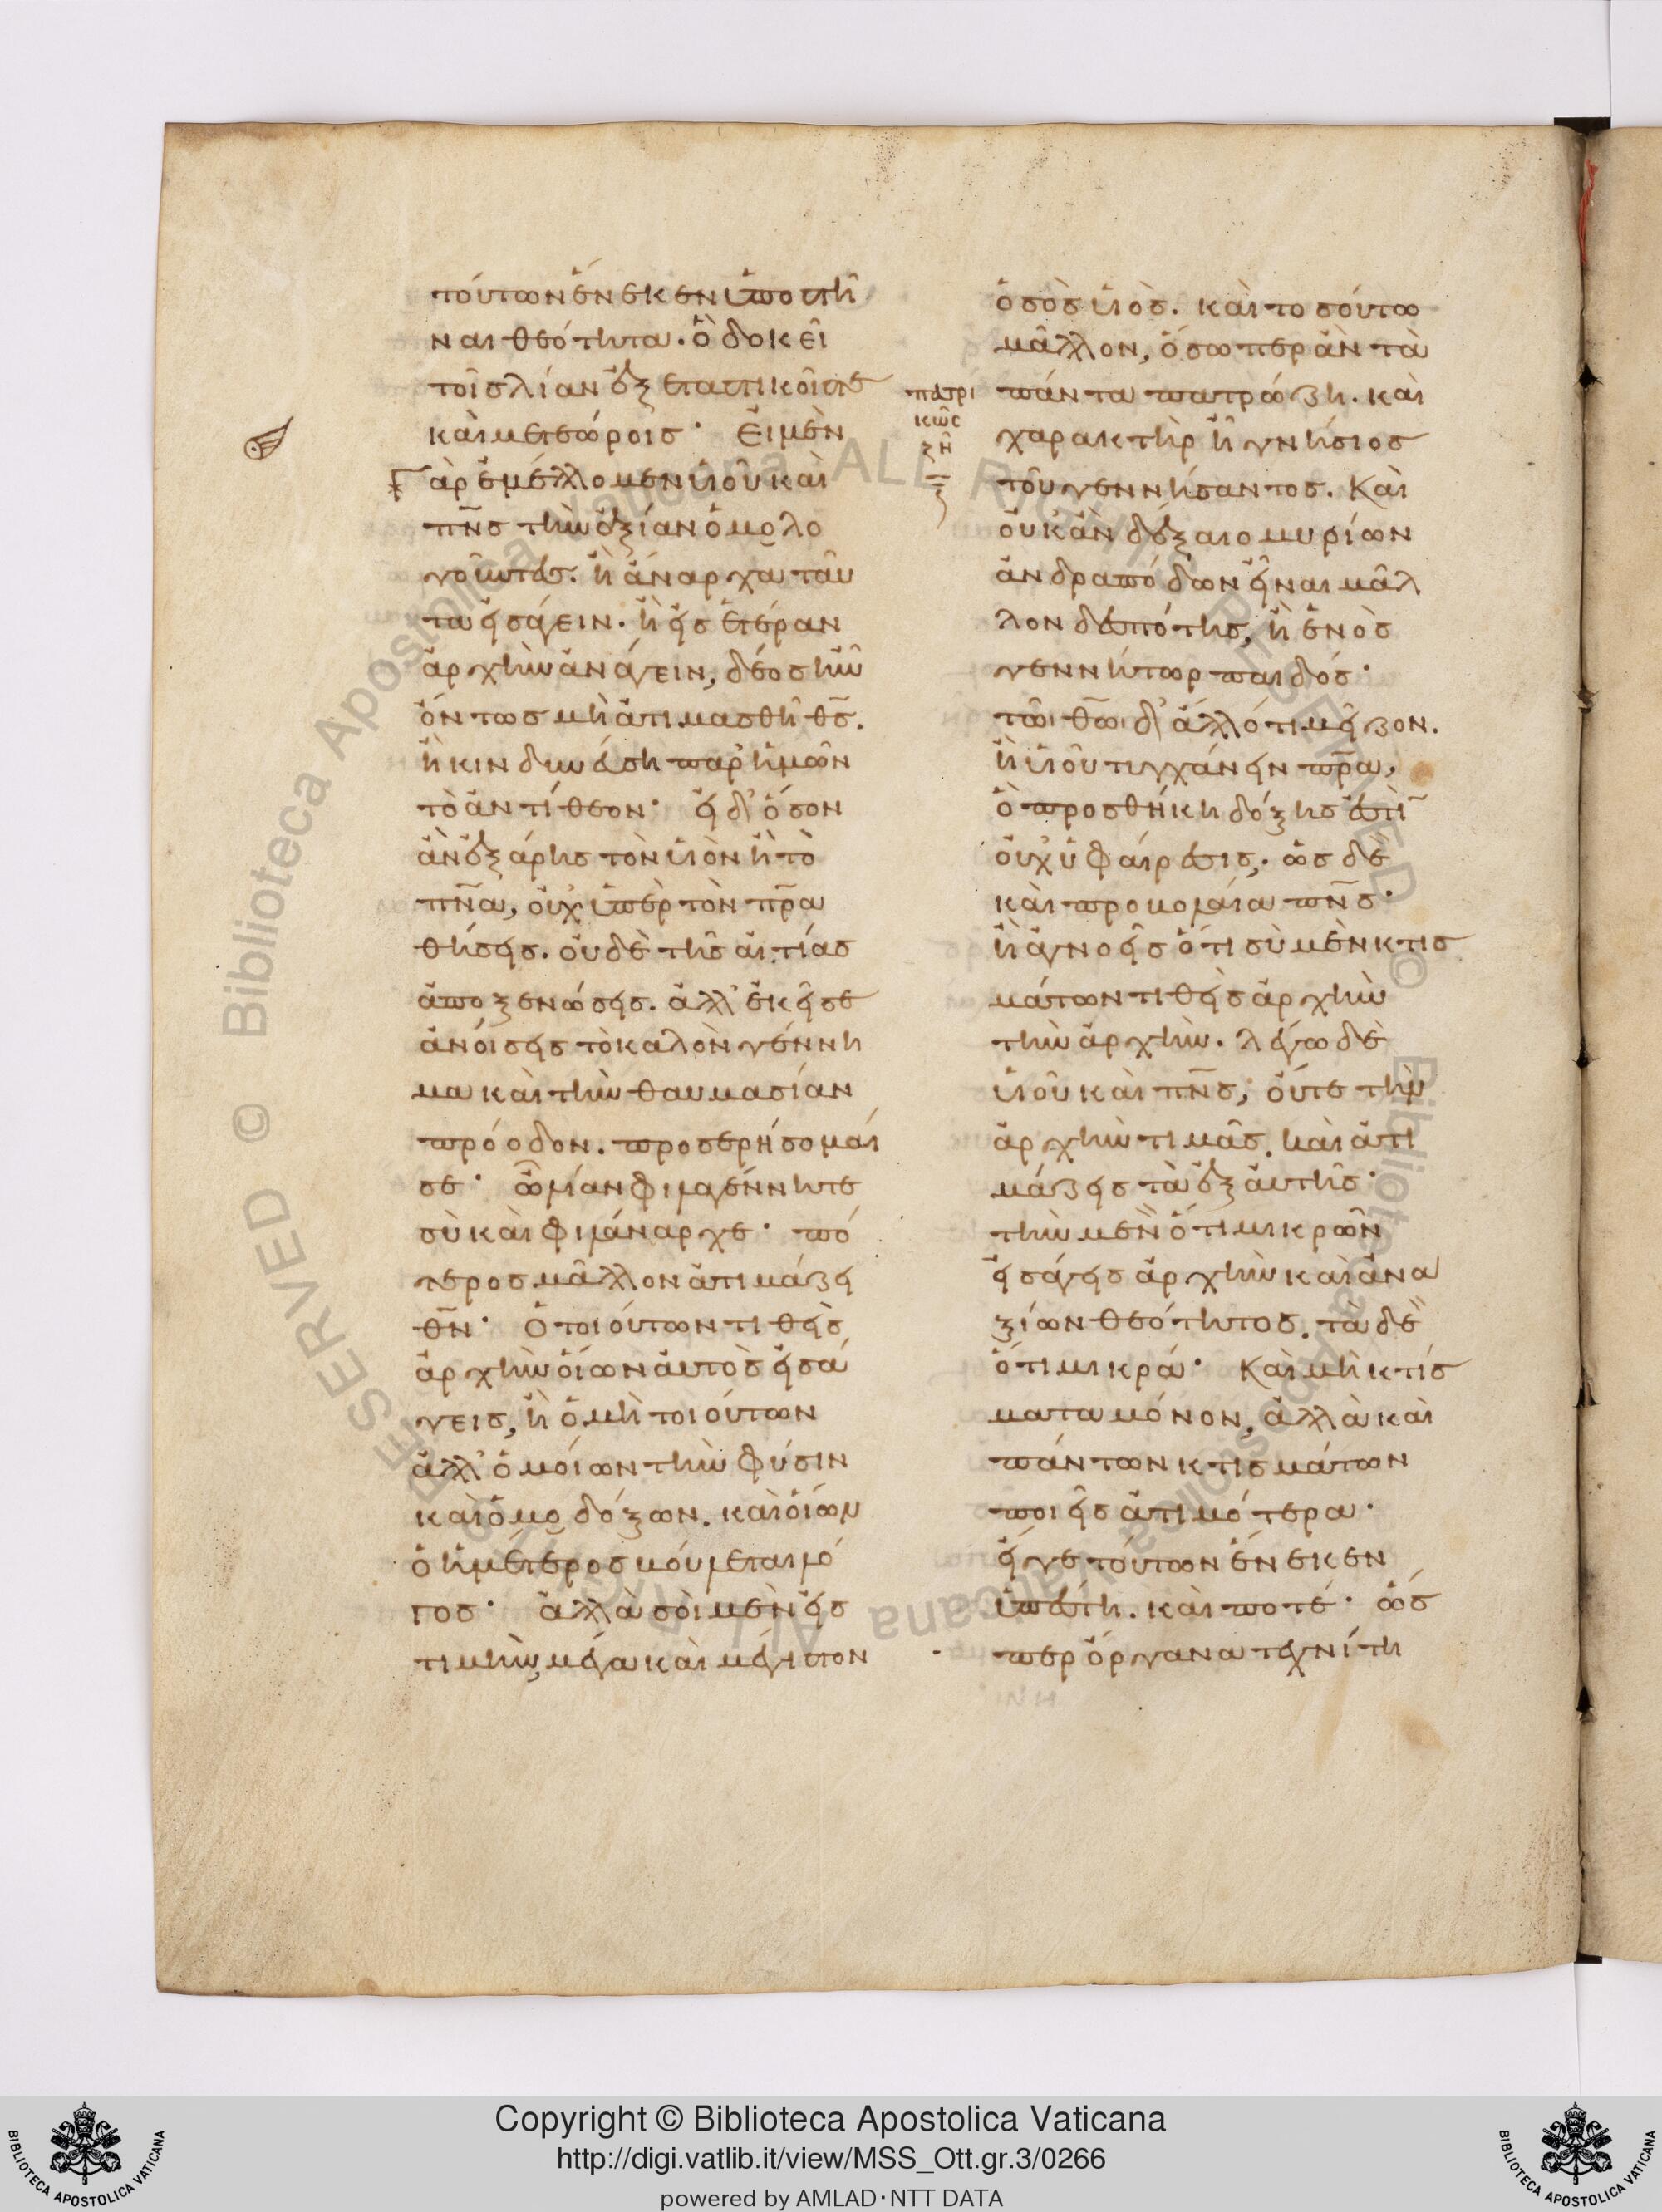 τούτων ἕνεκεν ὑποστῆ
ναι θεότητα· ὃ δοκεῖ
τοῖς λίαν ἐξεταστικοῖς τε
καὶ μετεώροις· Εἰ μὲν
γὰρ ἐμέλλομεν υἱοῦ καὶ
πν̅ς τὴν ἀξίαν ὁμολο
γοῦντες· ἢ ἄναρχα ταῦ
τα εἰσάγειν· ἢ εἰς ἑτέραν
ἀρχὴν ἀνάγειν, δέος ἦν
ὄντως μὴ ἀτιμασθῆ θς̅.
ἢ κινδυνεύση παρ' ἡμῶν
τὸ ἀντίθεον· εἰ δ' ὅσον
ἂν ἐξάρης τὸν υἱὸν ἢ τὸ
πν̅α, οὐχ ὑπὲρ τὸν πρ̅α
θήσεις. οὐδὲ τῆς αἰτίας
ἀποξενώσεις. ἀλλ' ἐκεῖσε
ἀνοίσεις τὸ καλὸν γέννη
μα καὶ τὴν θαυμασίαν
πρόοδον. προσερήσομαί
σε· ὦ μίαν φιλαγέννητε
σὺ καὶ φιλάναρχε· πό
τερος μᾶλλον ἀτιμάζει
θν̅· Ὁ τοιούτων τιθεὶς
ἀρχὴν οἵων αὐτὸς εἰσά
γεις, ἢ ὁ μὴ τοιούτων
ἀλλ' ὁμοίων τὴν φύσιν
καὶ ὁμοδόξων. καὶ οἵων
ὁ ἡμέτερος βούλεται λό
γος· ἀλλὰ σοὶ μὲν εἰς
τιμὴν, μέγα καὶ μέγιστον
πατρι
κῶς
ζῆ
ὁ σὸς υἱὸς. καὶ τοσούτω
μᾶλλον, ὅσω περ ἂν τὰ
πάντα πατρώζη. καὶ
χαρακτὴρ ἦ γνήσιος
τοῦ γεννήσαντος. Καὶ
οὐκ ἂν δέξαιο μυρίων
ἀνδραπόδων εἶναι μᾶλ
λον δεσπότης, ἢ ἑνὸς
γεννήτωρ παιδός·
τῶι θῶ̅ι δ' ἄλλό τι μεῖζον.
ἢ υἱοῦ τυγχάνειν πρ̅α,
ὃ προσθήκη δόξης ἐστὶ
οὐχ ὑφαίρεσις, ὡς δὲ
καὶ προβολέα πν̅ς·
ἢ ἀγνοεῖς ὅτι σὺ μὲν κτισ
μάτων τιθεὶς ἀρχὴν
τὴν ἀρχὴν. λέγω δὲ
υἱοῦ καὶ πν̅ς, οὔτε τὴν
ἀρχὴν τιμᾶς, καὶ ἀτι
μάζεις τὰ ἐξ αὐτῆς·
τὴν μὲν ὅτι μικρῶν
εἰσάγεις ἀρχὴν καὶ ἀνα
ξίων θεότητος. τὰ δὲ
ὅτι μικρά· Καὶ μὴ κτίσ
ματα μόνον, ἀλλὰ καὶ
πάντων κτισμάτων
ποιεῖς ἀτιμότερα·
εἴγε τούτων ἕνεκεν
ὑπέστη. καὶ ποτέ· ὥσ
περ ὄργανα τεχνίτη
Copyright © Biblioteca Apostolica Vaticana
http://digi.vatlib.it/view/MSS_Ott.gr.3/0266
powered by AMLAD·NTT DATA